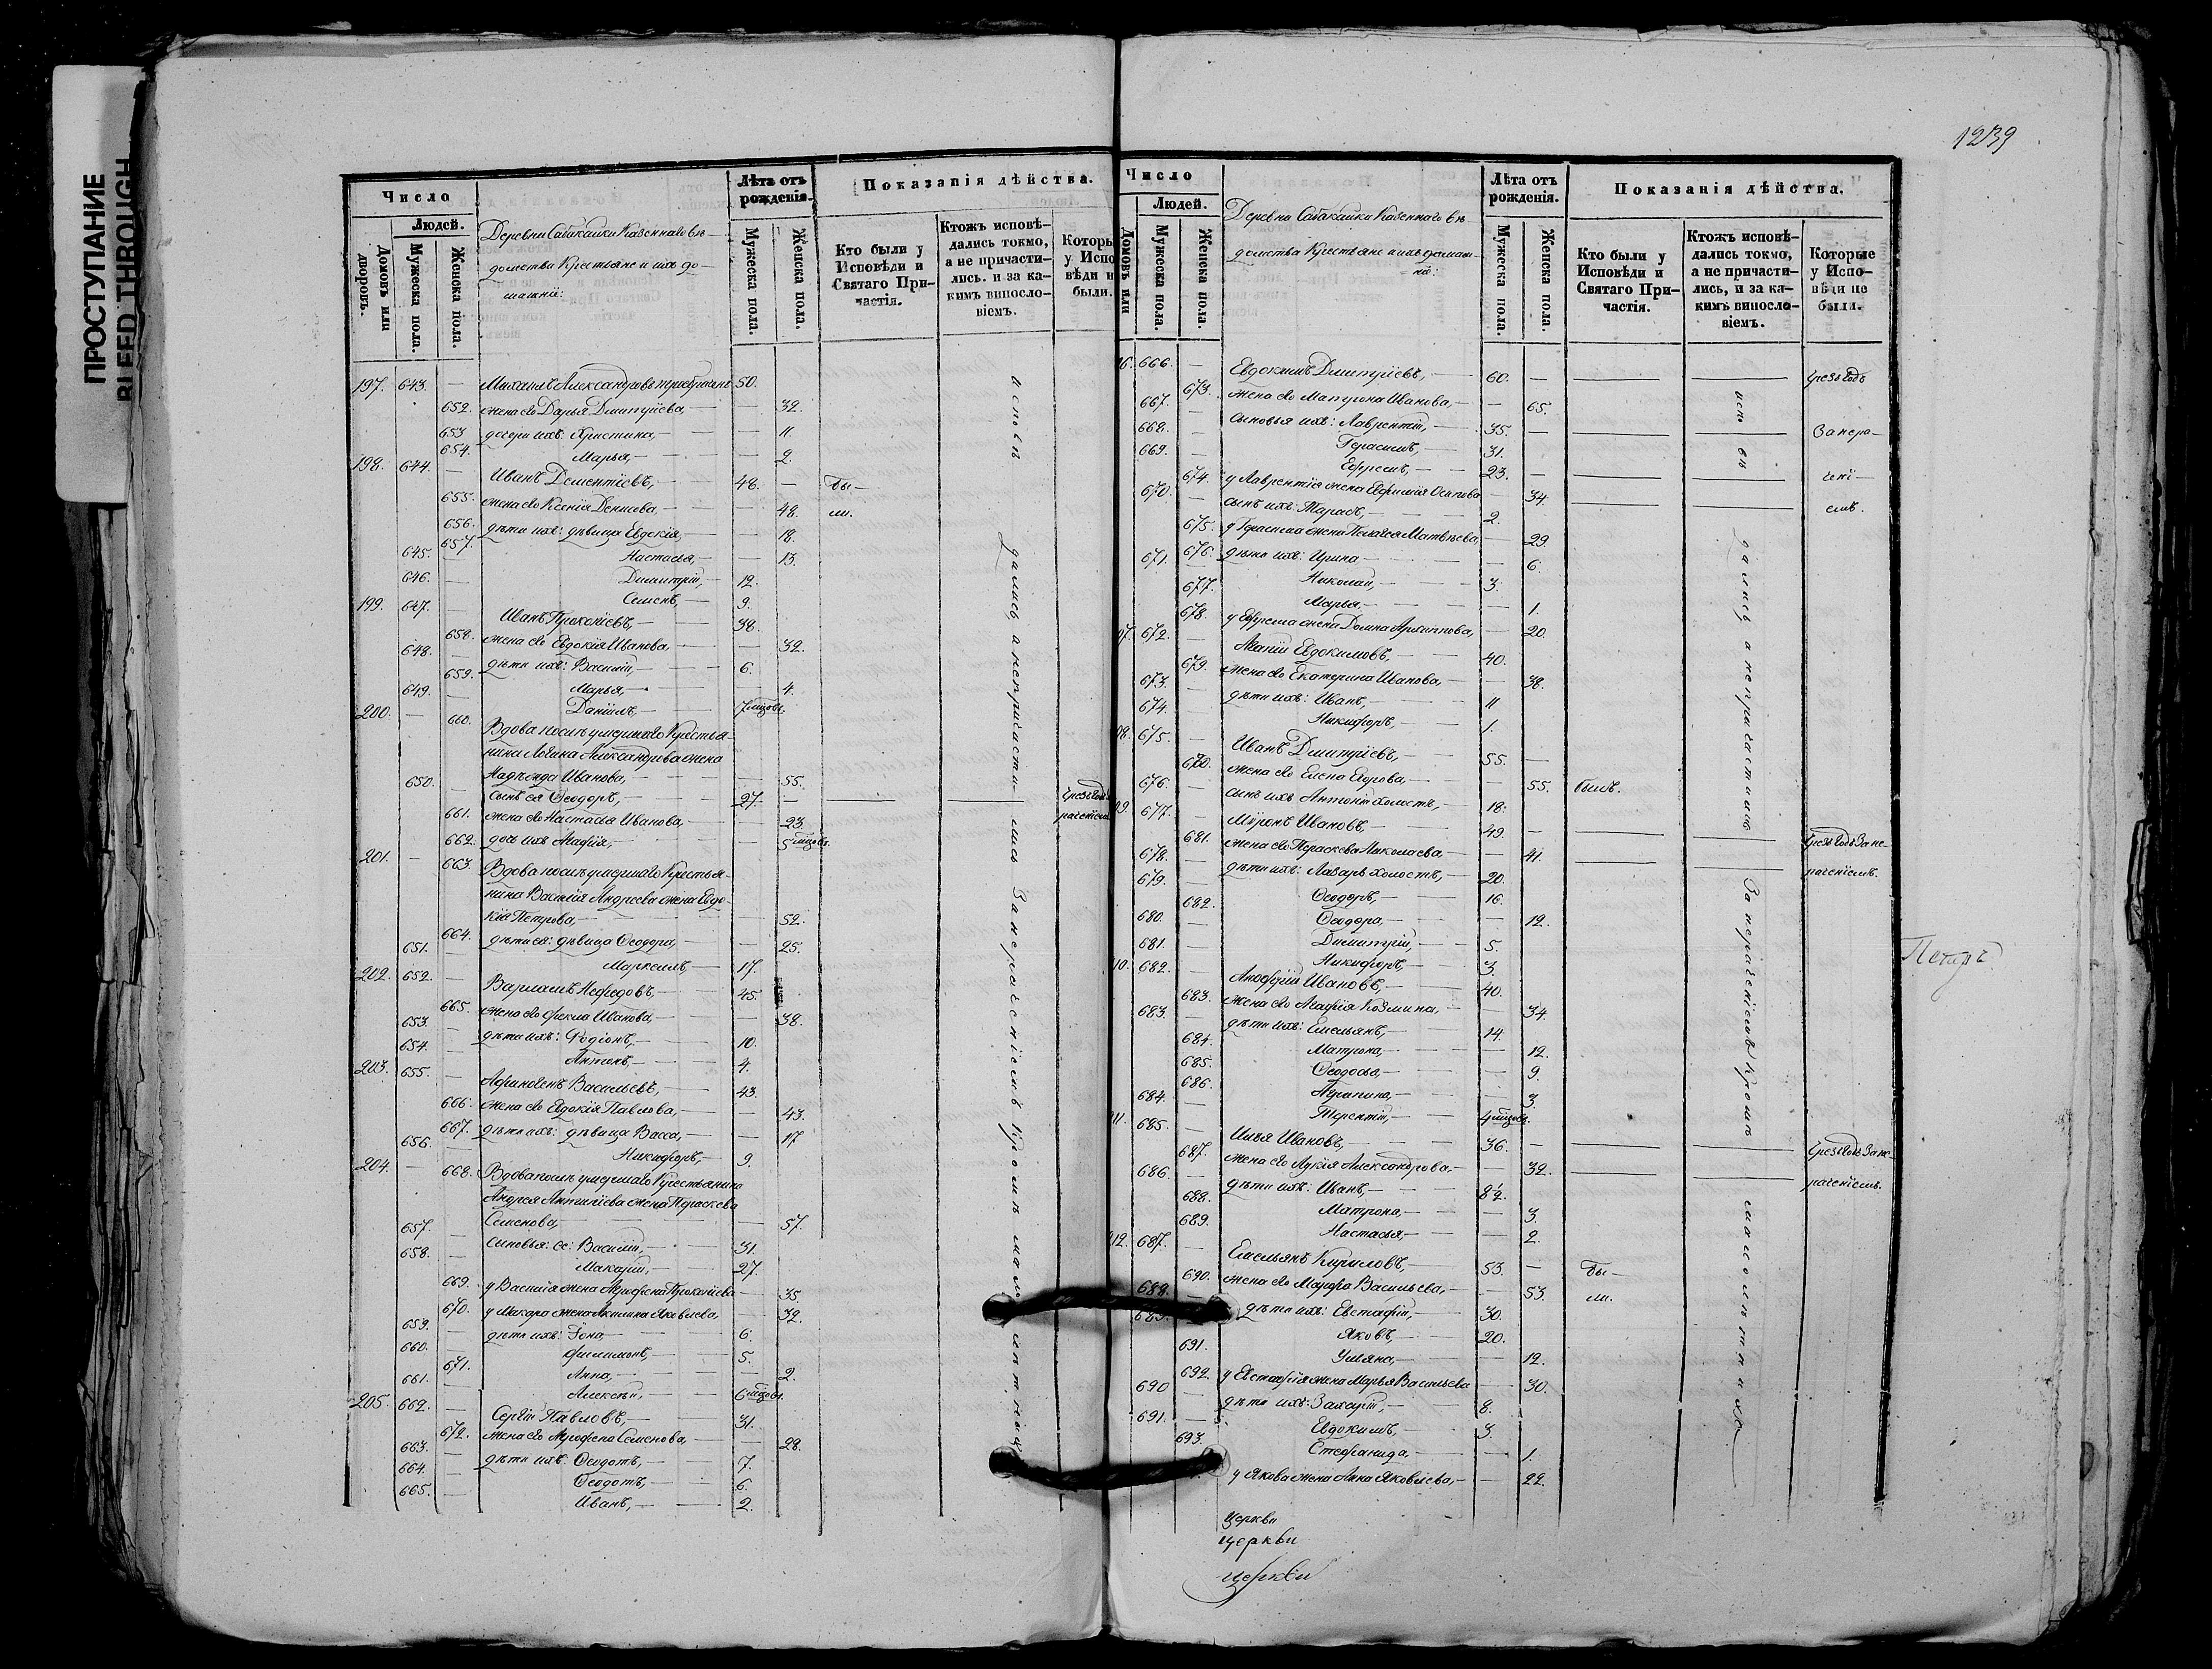 ПРОСТУПАНИЕ
BLEED THROUGH
Число
Людей.
Домовъ или дворовъ.
Мужеска пола.
Женска пола.
Деревни Сабакайки Казеннаго вѣ-
домства Крестьяне и ихъ до-
машніе:
Лѣта отъ рожденія.
Мужеска пола.
Женска пола.
Показанія дѣйства.
Кто были у Исповѣди и Святаго При-частія.
Ктожъ исповѣ-дались токмо, а не причасти-лись. и за ка-кимъ виносло-віемъ.
Которы
у Испо
вѣди н
были.
197. 643. — Михаилъ Александровъ 50.
652. жена его Дарья Дмитріева, — — 32.
653 дочери ихъ: Христина, — — 11.
654. Марья, — — 2.
198. 644. — Иванъ Дементіевъ, — 48. — бы-
655. жена его Ксенія Денисова, — — 48. ли.
656. дѣти ихъ: дѣвица Евдокія, — — 18.
657. Настасья, — — 13.
645. — Димитрій, — 12.
646. — Семенъ, — 9.
199. 647. — Иванъ Прокопіевъ, — 38.
658. жена его Евдокія Иванова, — — 32.
648. — дѣти ихъ: Василій, — 6.
659. Марья, — — 4.
649. — Даніилъ, — 7 мцовъ
200. — 660. Вдова послѣ умершаго Крестья-
нина Логина Александрова жена
Надежда Иванова, — — 55.
650. — сынъ ея Ѳеодоръ, — 27. — — —
661. жена его Настасья Иванова, — — 23.
662. дочь ихъ Агафія, — — 5 мцовъ
201. — 663. Вдова послѣ умершаго Крестья-
нина Василія Андреева жена Евдо-
кія Петрова, — — 52.
664. дѣти ея: дѣвица Ѳеодора, — — 25.
651. — Маркеллъ, — 17.
202. 652. — Варламъ Нефедовъ, — 45.
665. жена его Фекла Иванова, — — 38.
653. — дѣти ихъ: Родіонъ, — 10.
654. — Антонъ, — 4.
203. 655. — Афиногенъ Васильевъ, — 43.
666. жена его Евдокія Павлова, — — 43.
667. дѣти ихъ: дѣвица Васса, — — 17
656. — Никифоръ, — 9.
204. — 668. Вдова послѣ умершаго Крестьянина
Андрея Антипіева жена Параскева
Семенова, — — 57.
657. — сыновья: ее: Василій, — 31.
658. — Макарій, — 27.
669. у Василія жена Агрофена Прокопіева — 35
670. у Макара жена Акилина Яковлева, — 32.
659. — дѣти ихъ: Іона, — 6.
660. — Филимонъ, — 5.
671. Анна, — — 2.
661. — Алексѣй, — 6 мцовъ
205. 662. — Сергій Павловъ, — 31.
672. жена его Агрофена Семенова, — — 28.
663. — дѣти ихъ: Ѳеодотъ, — 7.
664. — Ѳеодотъ, — 6.
665. — Иванъ, — 2.
исповѣ
дались а непричасти-
лись
За нераченіемъ кромѣ мал
1239
Число
Людей.
Домовъ или
Мужеска пола.
Женска пола.
Деревни Сабакайки Казеннаго вѣ-
домства Крестьяне и ихъ домаш-
ніе:
Лѣта отъ рожденія.
Мужеска пола.
Женска пола.
Показанія дѣйства.
Кто были у Исповѣди и Святаго При-частія.
Ктожъ исповѣ-дались токмо, а не причасти-лись, и за ка-кимъ винослo-віемъ.
Которые у Испо-вѣди не были.
06. 666. — Евдокимъ Дмитріевъ, — 60. — — —
673. жена его Матрона Иванова, — — 65.
667. — сыновья ихъ: Лаврентій, — 35. — — — За нера-
668. — Герасимъ, — 31.
669. — Ефремъ, — 23. — — — чені-
674. у Лаврентія жена Евфимія Осипова — 34. — — емъ.
670. — сынъ ихъ Тарасъ, — 2.
675. у Герасима жена Пелагея Матвѣева — 29.
676. дѣти ихъ: Ирина — — 6.
671. Николай, — 3.
677. Марья, — — 1.
678. у Ефрема жена Домна Архиппова, — 20.
07. 672. — Агапій Евдокимовъ, — 40.
679. жена его Екатерина Иванова, — — 38.
673. — дѣти ихъ: Иванъ, — 11
674. Никифоръ, — 1.
08. 675. — Иванъ Дмитріевъ, — 55. —
680. жена его Елена Егорова, — — 55. былъ.
676. — сынъ ихъ Антонъ холостъ, — 18.
09. 677. — Миронъ Ивановъ, — 49. — — —
681. жена его Параскева Николаева — — 41. — — раченіемъ.
678. дѣти ихъ: Лазарь холостъ, — 20.
679. — Ѳеодоръ, — 16.
682. Ѳеодора, — — 12.
680. Димитрій, — 5.
681. — Никифоръ, — 3.
10. 682. — Анофрій Ивановъ, — 40.
683. жена его Агафія Козмина, — — 34.
683. — дѣти ихъ: Емельянъ, — 14.
684. Матрона, — — 12.
685. Ѳеодосья, — — 9.
686. — — 3.
684. — Терентій, — 4 мцовъ.
11. 685. — Илья Ивановъ, — 36. — — —
687. жена его Лукія Александрова, — — 32. — — раченіемъ.
686. — дѣти ихъ: Иванъ, — 8½.
688. Матрона, — — 3.
689. Настасья, — — 2.
212. 687. — Емельянъ Кириловъ, — 53. — бы-
690. жена его Мавра Васильева, — — 53. ли.
688. дѣти ихъ: Евстафій, — 30.
689. Яковъ, — 20.
691. Ульяна, — — 12.
692. у Евстафія жена Марья Васильева — 30.
690 — дѣти ихъ: Захарій, — 8.
691. — Евдокимъ, — 3.
693. Стефанида, — — 1.
у Якова жена Анна Яковлева, — — 22.
испо
вѣ
дались а непричастились
За нераченіемъ Кромѣ
малолѣтнихъ
Церкви
церкви
церкви